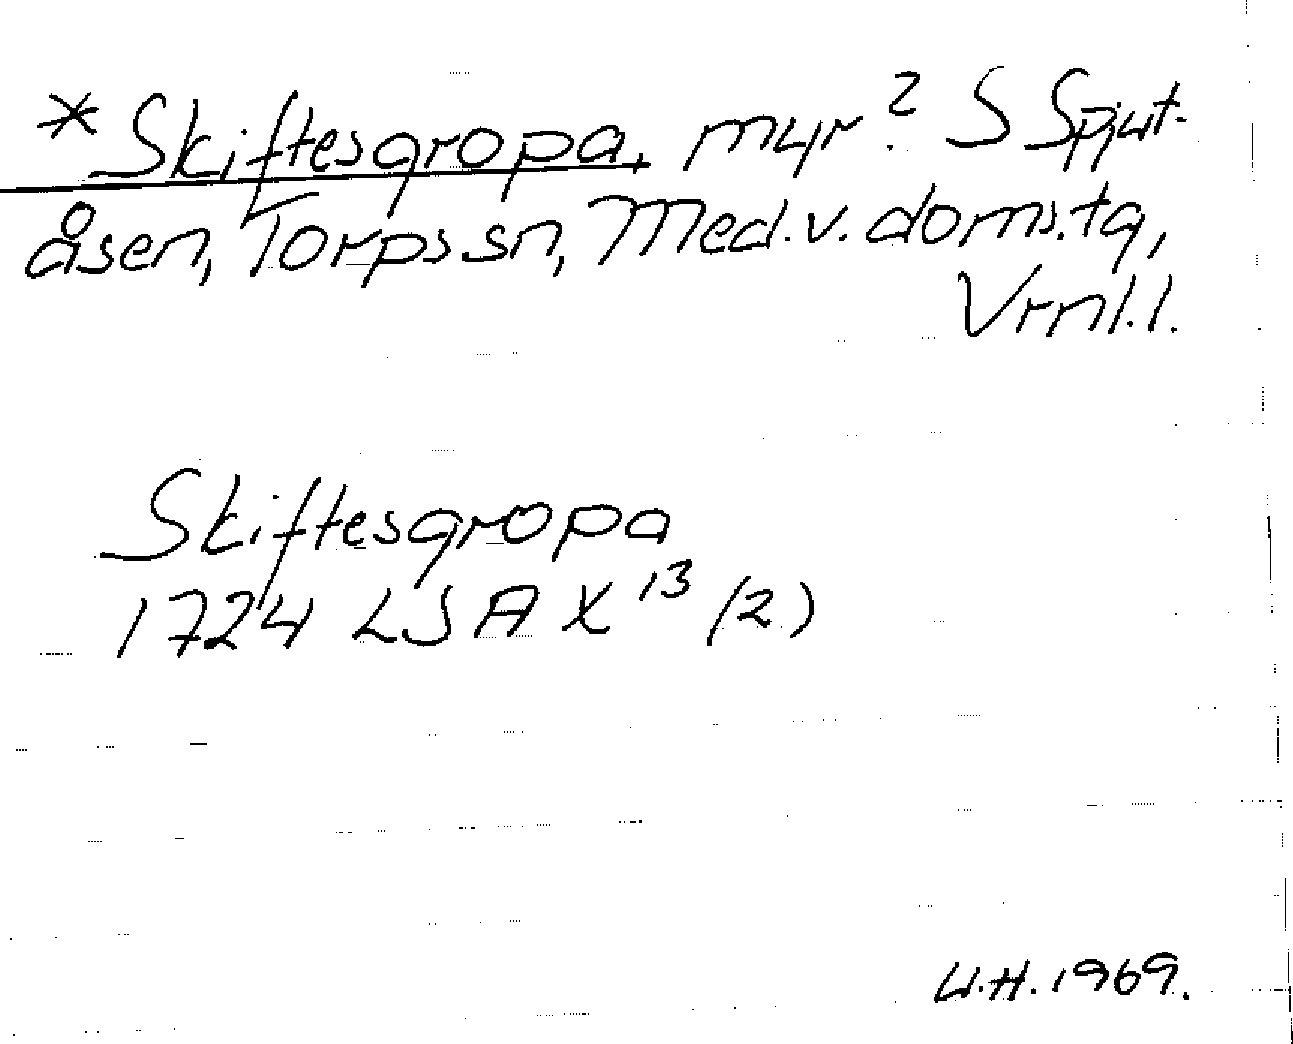 *Skiftesgropa, myr? S Spjut-
åsen, Torps sn, Med.v. doms.tg,
Vrnl.l.
Skiftesgropa
1724 LSA X 13 (2)
U.H. 1969.